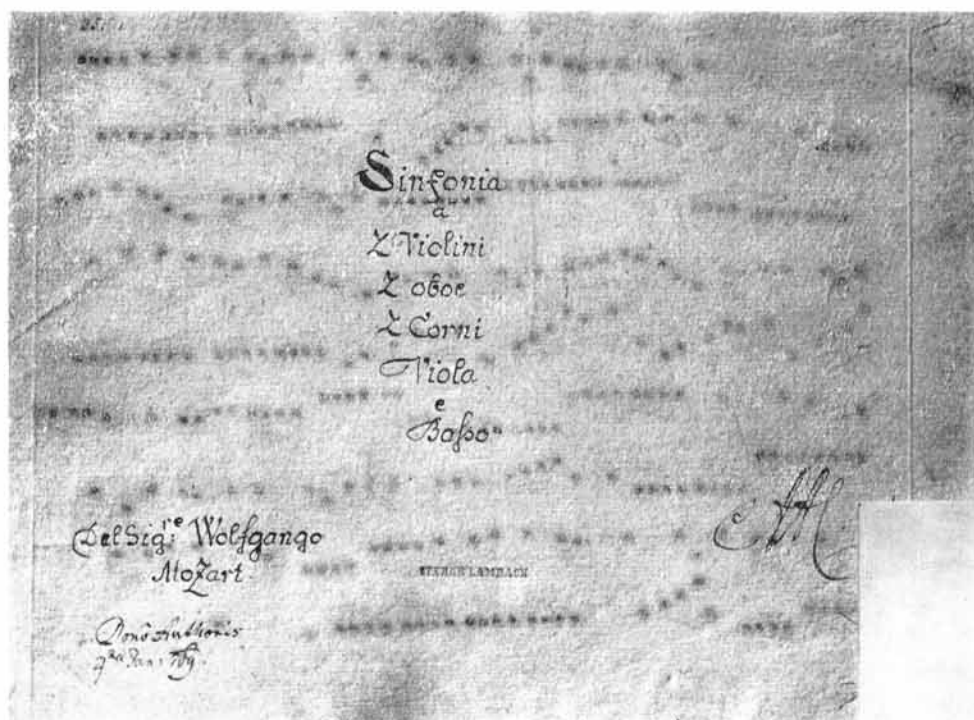 Sinfonia
a
2 Violini
2 oboe
2 Corni
Viola
e
Basso
Del Sig:re Wolfgango
Mozart.
STIFT LAMBACH
Dono Authoris
4ta Jan: 769.